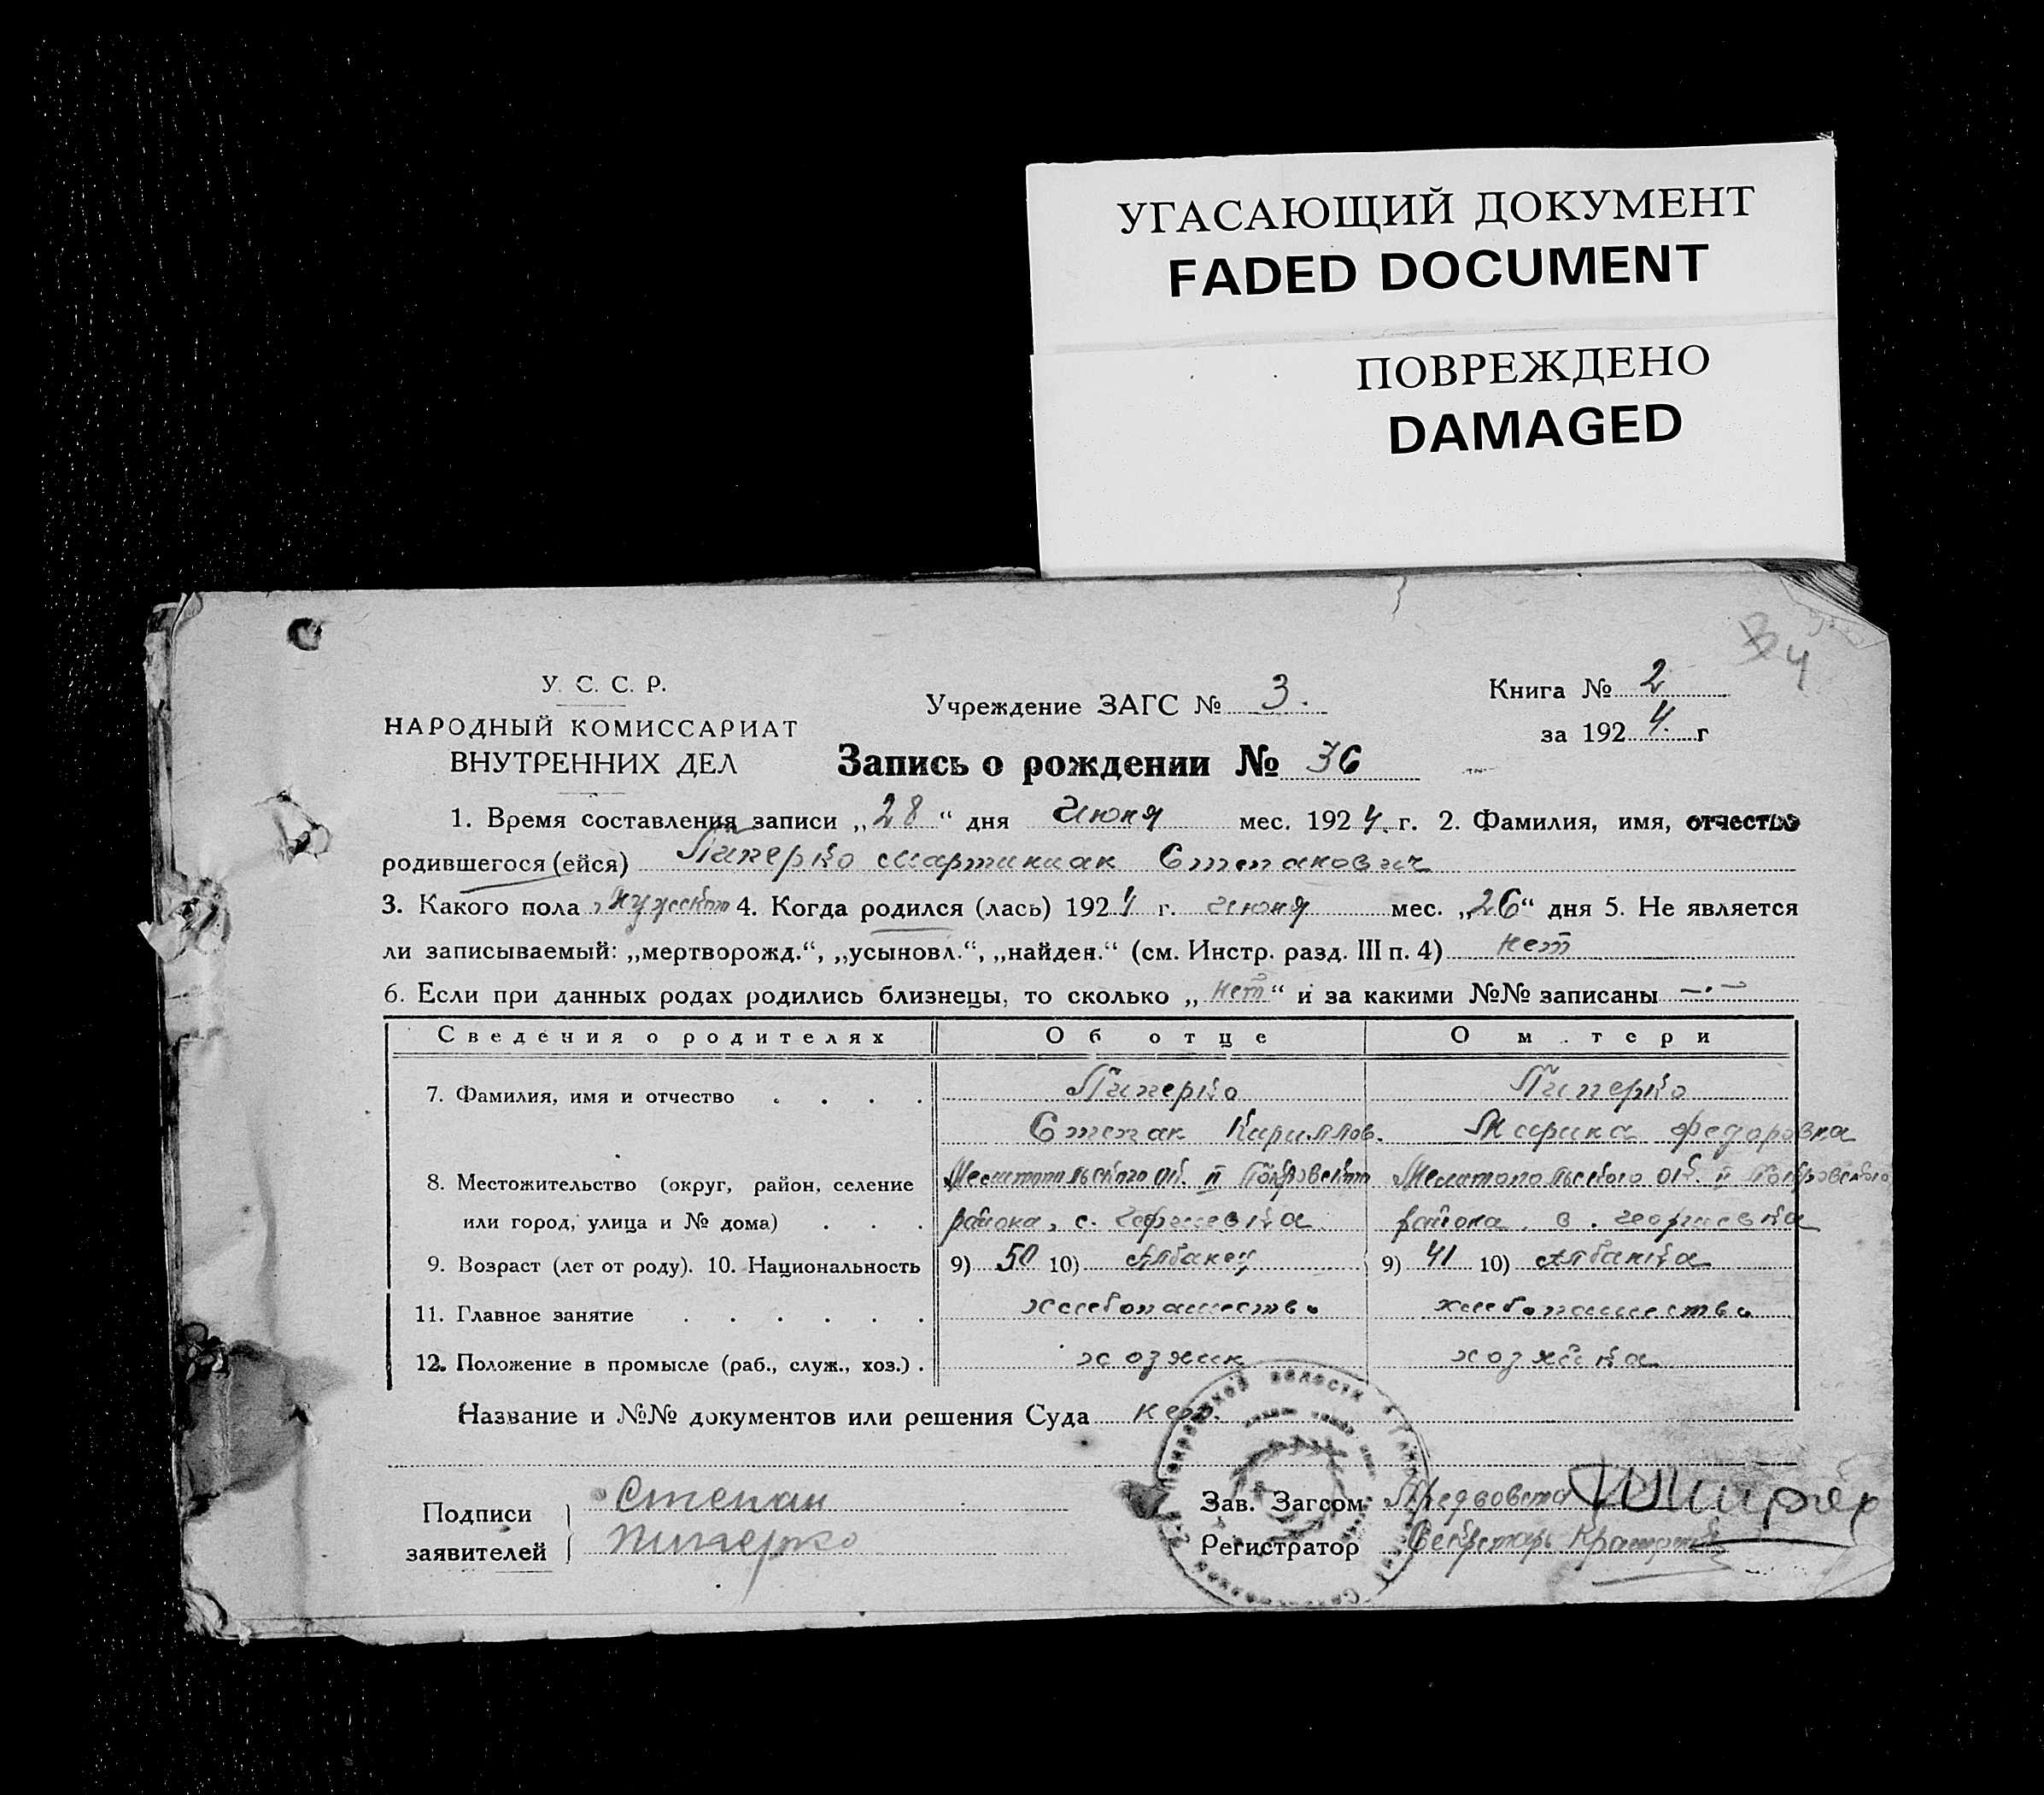 УГАСАЮЩИЙ ДОКУМЕНТ
FADED DOCUMENT
ПОВРЕЖДЕНО
DAMAGED
4
У. С. С. Р.
НАРОДНЫЙ КОМИССАРИАТ
ВНУТРЕННИХ ДЕЛ
Учреждение ЗАГС № 3.
Книга № 2
за 1924 г
Запись о рождении № 36
1. Время составления записи „28“ дня Июня мес. 1924. г. 2. Фамилия, имя, отчество
родившегося (ейся) Пиперко Мартиниан Степанович
3. Какого пола мужского 4. Когда родился (лась) 1924 г. июня мес. „26“ дня 5. Не является
ли записываемый: „мертворожд.“, „усыновл.“, „найден.“ (см. Инстр. разд. III п. 4) нет
6. Если при данных родах родились близнецы, то сколько „нет“ и за какими №№ записаны —·—
Сведения о родителях Об отце О м.тери
7. Фамилия, имя и отчество . . . . Пиперко Пиперко
Степан Кириллов. Марина Федоровна
8. Местожительство (округ, район, селение Мелитопольского ок. II Покровского Мелитопольского ок. II Покровского
или город, улица и № дома) . . . района, с. Георгиевка района с. Георгиевка
9. Возраст (лет от роду). 10. Национальность 9) 50 10) Албанец 9) 41 10) Албанка
11. Главное занятие . . . . . . хлебопашество хлебопашество
12. Положение в промысле (раб., служ., хоз.) . хозяин хозяйка
Название и №№ документов или решения Суда нет.
Подписи
заявителей
Степан
Пиперко
Зав. Загсом Предволисп
Регистратор Секретарь